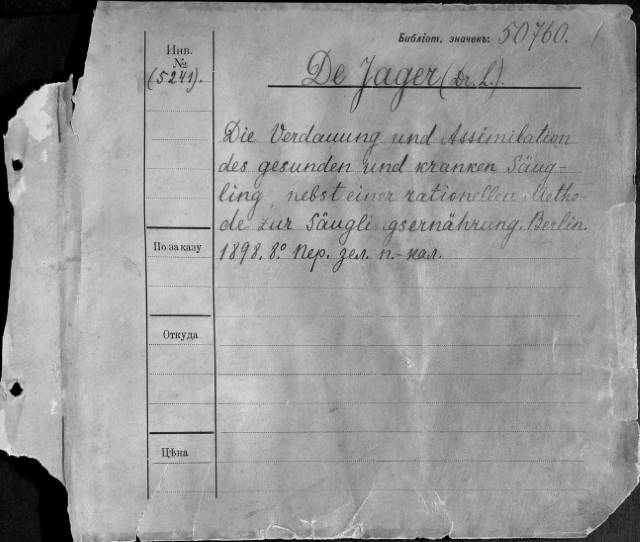 Библіот. значекъ: 50760.
Инв.
№
(5241).
De Jager (Dr. L.).
Die Verdauung und Assimilation
des gesunden und kranken Säug-
ling, nebst einer rationellen Metho-
de zur Säugli gsernährung. Berlin.
1898. 8º. Пер. зел. п.-кал.
По заказу
Откуда
Цѣна